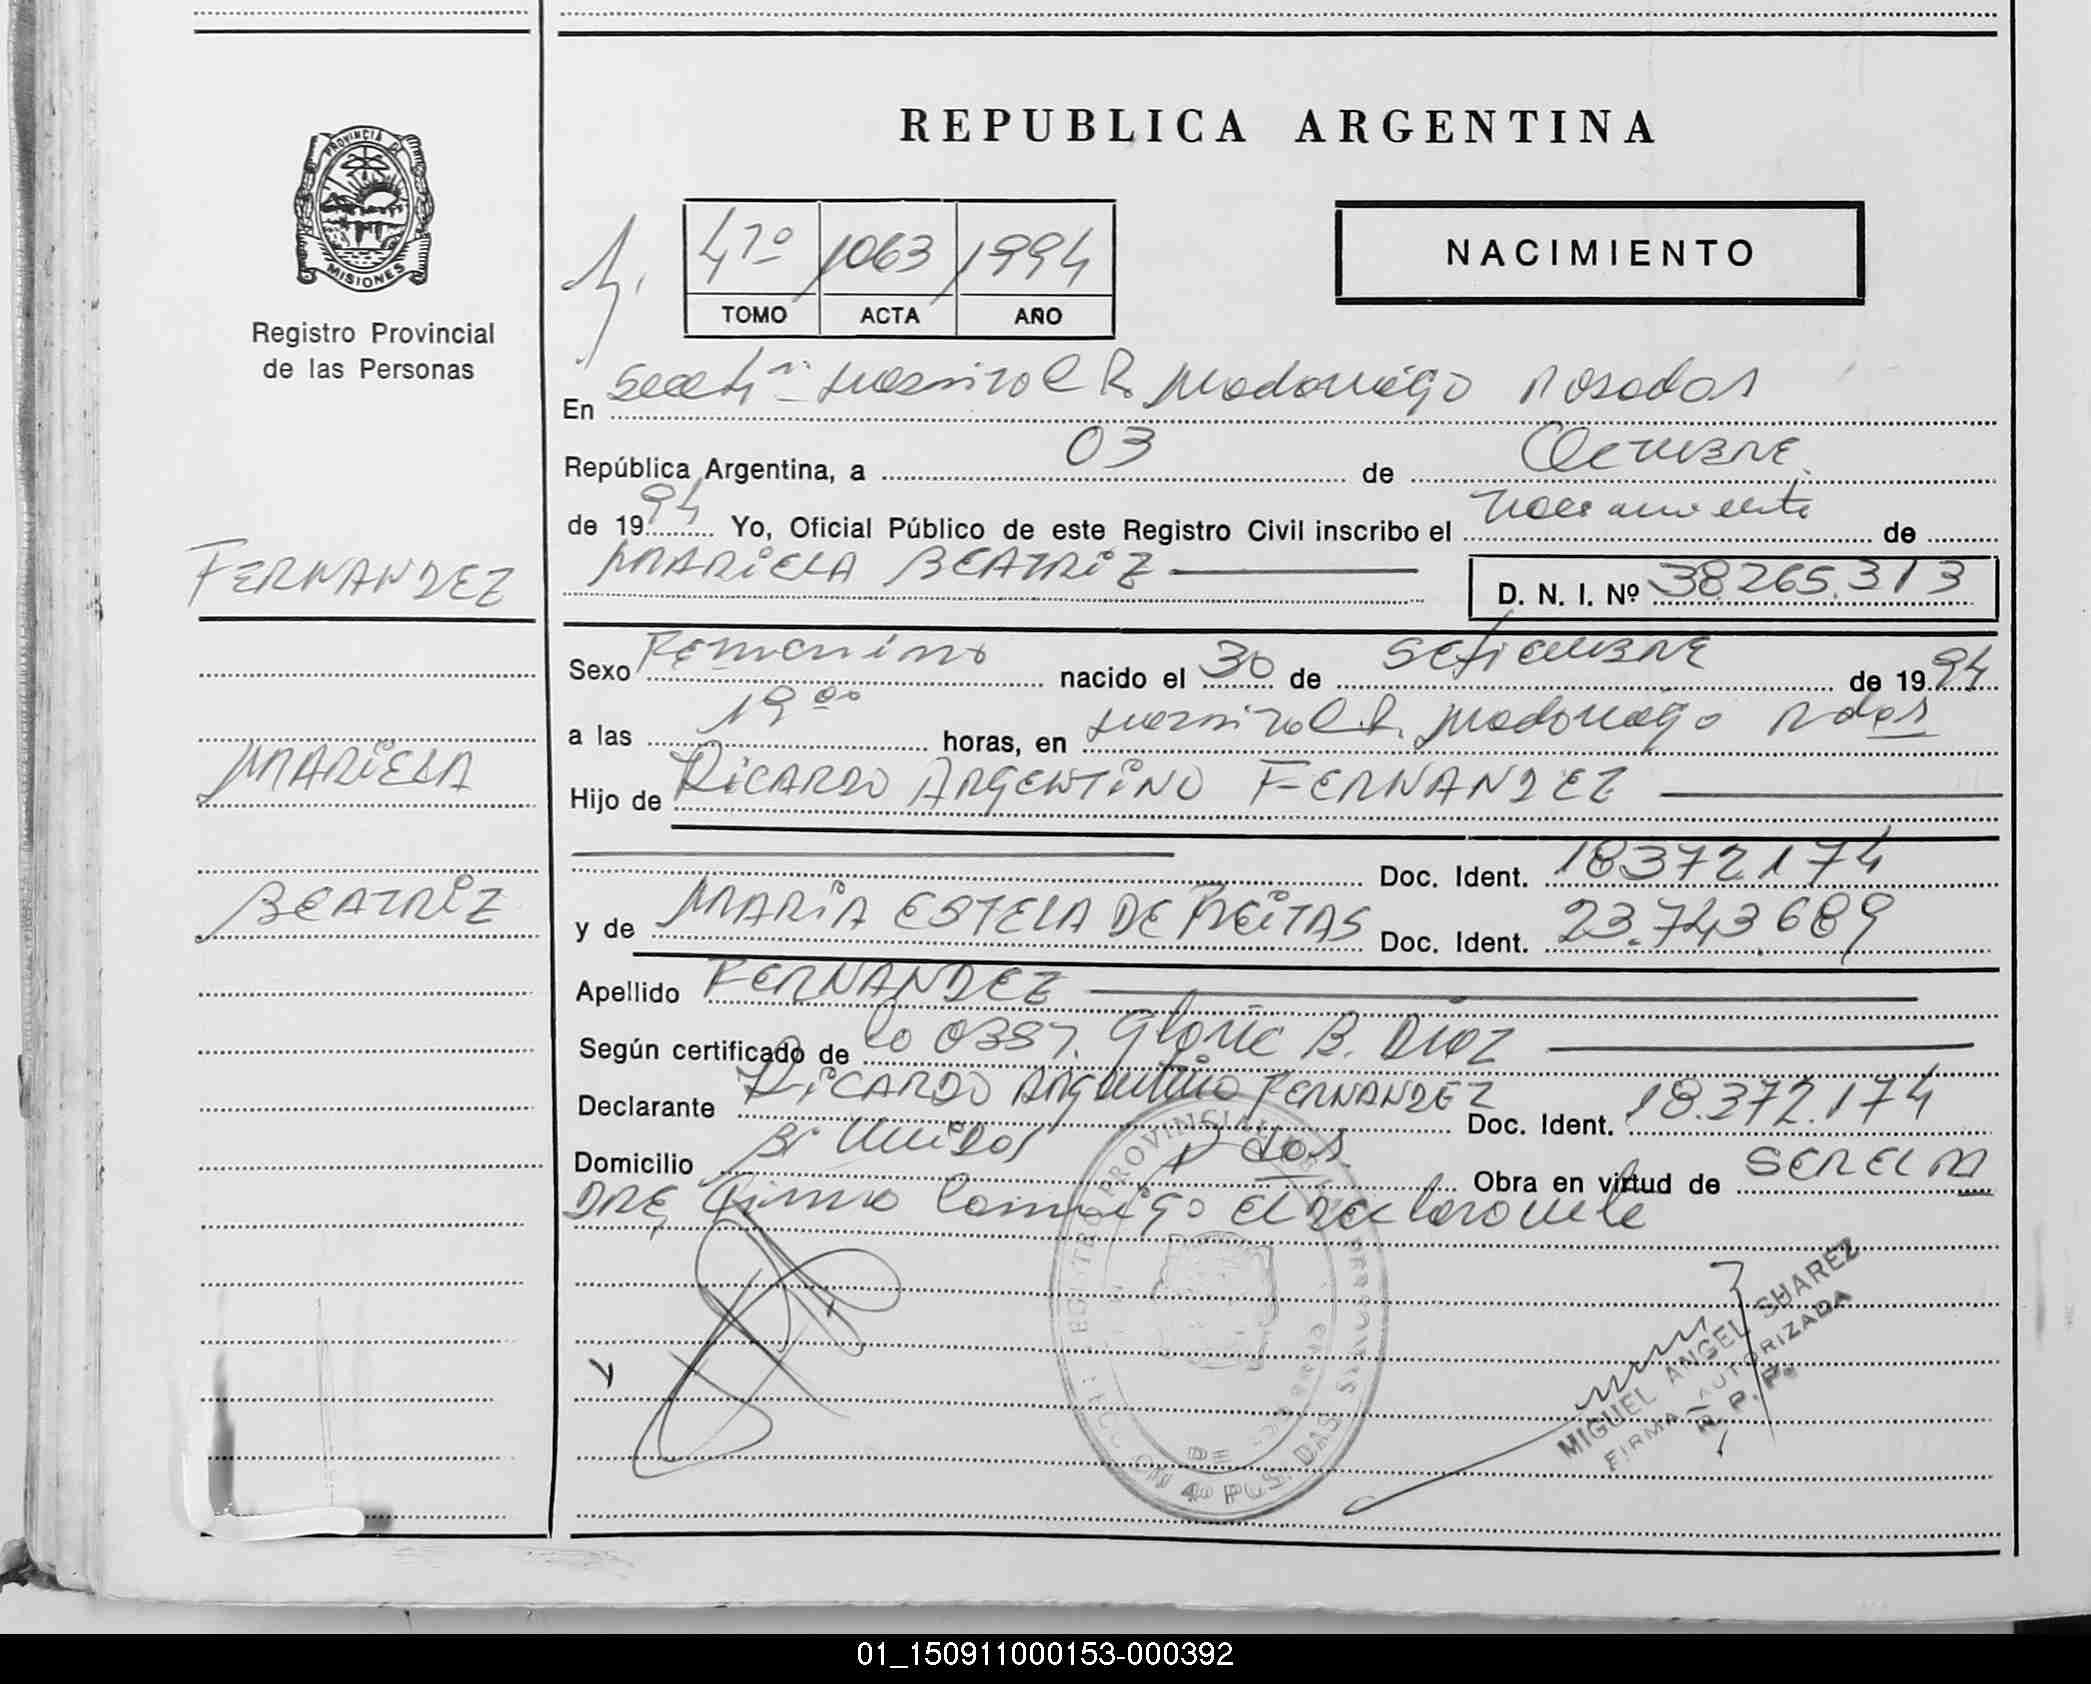 REPUBLICA ARGENTINA
PROVINCIA DE
MISIONES
Registro Provincial
de las Personas
4to 1063 1994
TOMO ACTA AÑO
NACIMIENTO
En R. Madariaga Posadas
República Argentina, a 03 de Octubre
de 1994 Yo, Oficial Público de este Registro Civil inscribo el Nacimiento de
MARIELA BEATRIZ D. N. I. Nº 38.265.313
FERNANDEZ
Sexo Femenino nacido el 30 de Setiembre de 1994
a las 19 00 horas, en R. Madariaga Pdas
MARIELA
Hijo de RICARDO ARGENTINO FERNANDEZ
Doc. Ident. 18372174
BEATRIZ
y de MARIA ESTELA DE FREITAS Doc. Ident. 23.743.689
Apellido FERNANDEZ
Según certificado de Gloria B. Diaz
Declarante RICARDO Argentino FERNANDEZ Doc. Ident. 18.372.174
Domicilio Bº Unidos Pdas Obra en virtud de SER EL PA
DRE, Firma Conmigo el declarante
MIGUEL ANGEL SUAREZ
FIRMA AUTORIZADA
R. P. P.
01_150911000153-000392